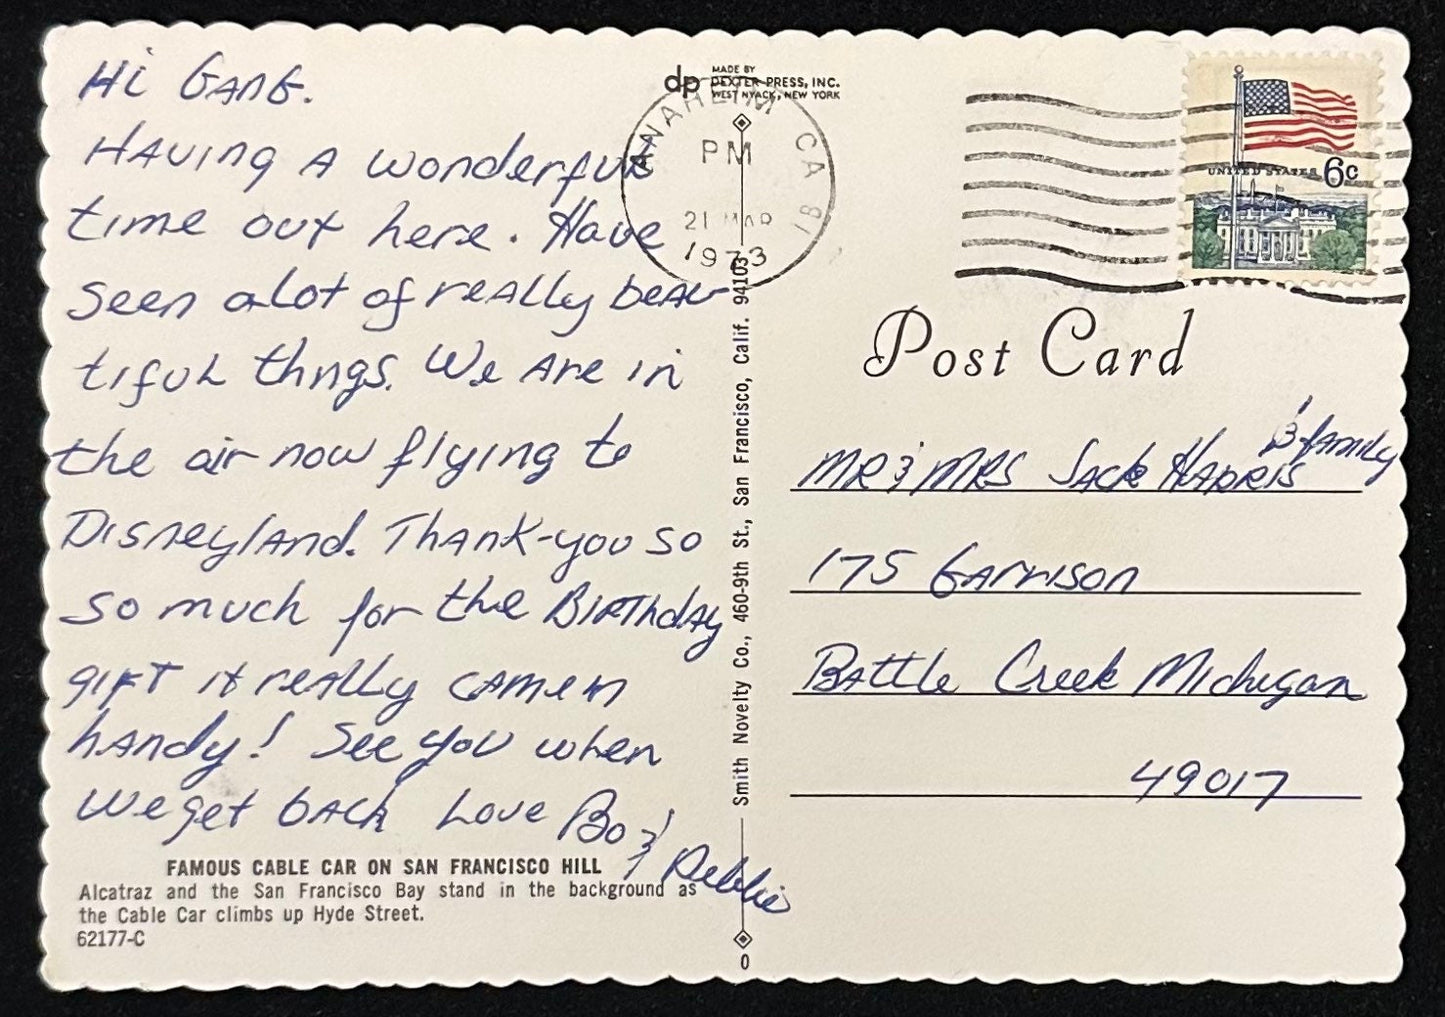 Hi Gang.
Having a wonderful
time out here. Have
seen alot of really beau
tiful thngs. We are in
the air now flying to
Disneyland. Thank-you so
so much for the Birthday
gift it really came in
handy! See you when
we get back Love Bo &
Debbie
FAMOUS CABLE CAR ON SAN FRANCISCO HILL
Alcatraz and the San Francisco Bay stand in the background as
the Cable Car climbs up Hyde Street.
62177-C
dp
MADE BY
DEXTER PRESS, INC.
WEST NYACK, NEW YORK
ANAHEIM CA
PM
21 MAR
1973
Smith Novelty Co., 460-9th St., San Francisco, Calif. 94103
0
UNITED STATES 6c
Post Card
& family
MR & MRS Jack Harris
175 Garrison
Battle Creek Michigan
49017